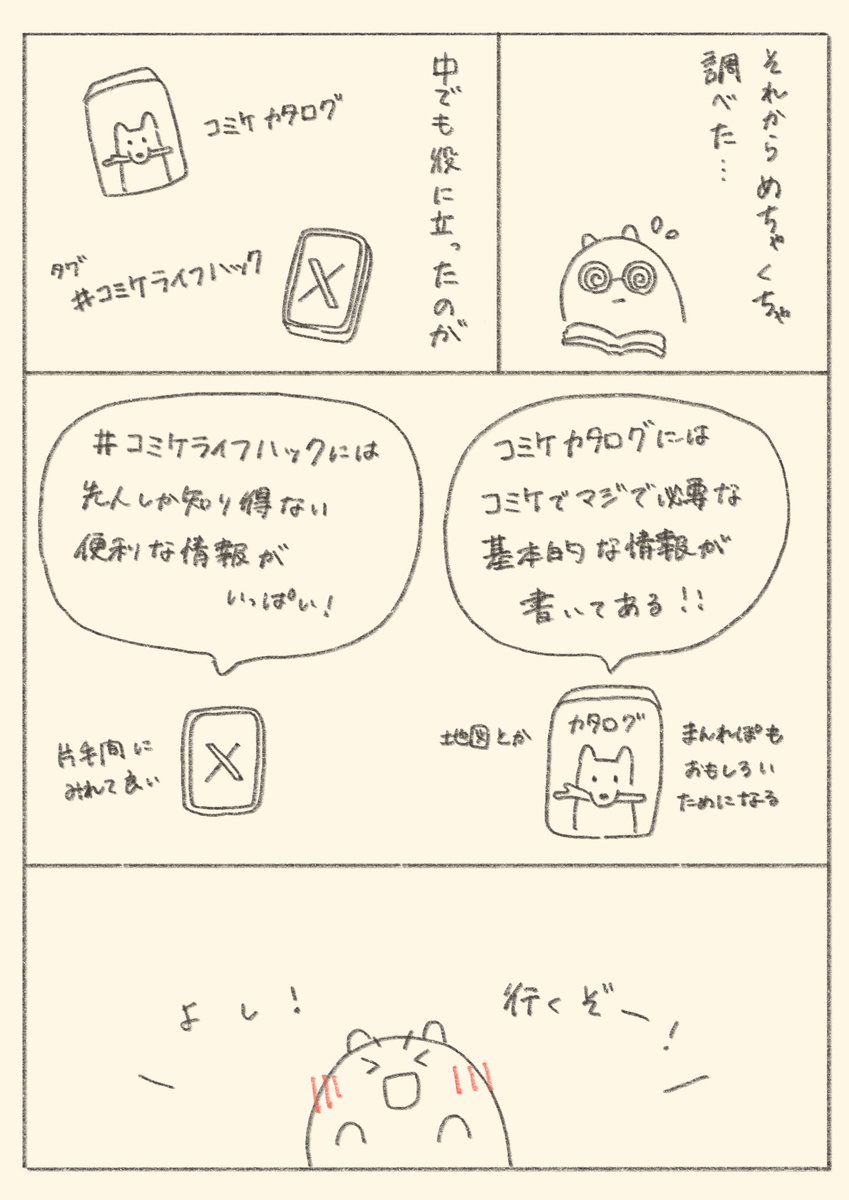 それからめちゃくちゃ
調べた…
中でも役に立ったのが
コミケカタログ
タグ
#コミケライフハック
X
コミケカタログには
コミケでマジで必要な
基本的な情報が
書いてある!!
カタログ
まんれぽも
おもしろい
ためになる
地図とか
#コミケライフハックには
先人しか知り得ない
便利な情報が
いっぱい!
X
片手間に
みれて良い
よし!
行くぞー!